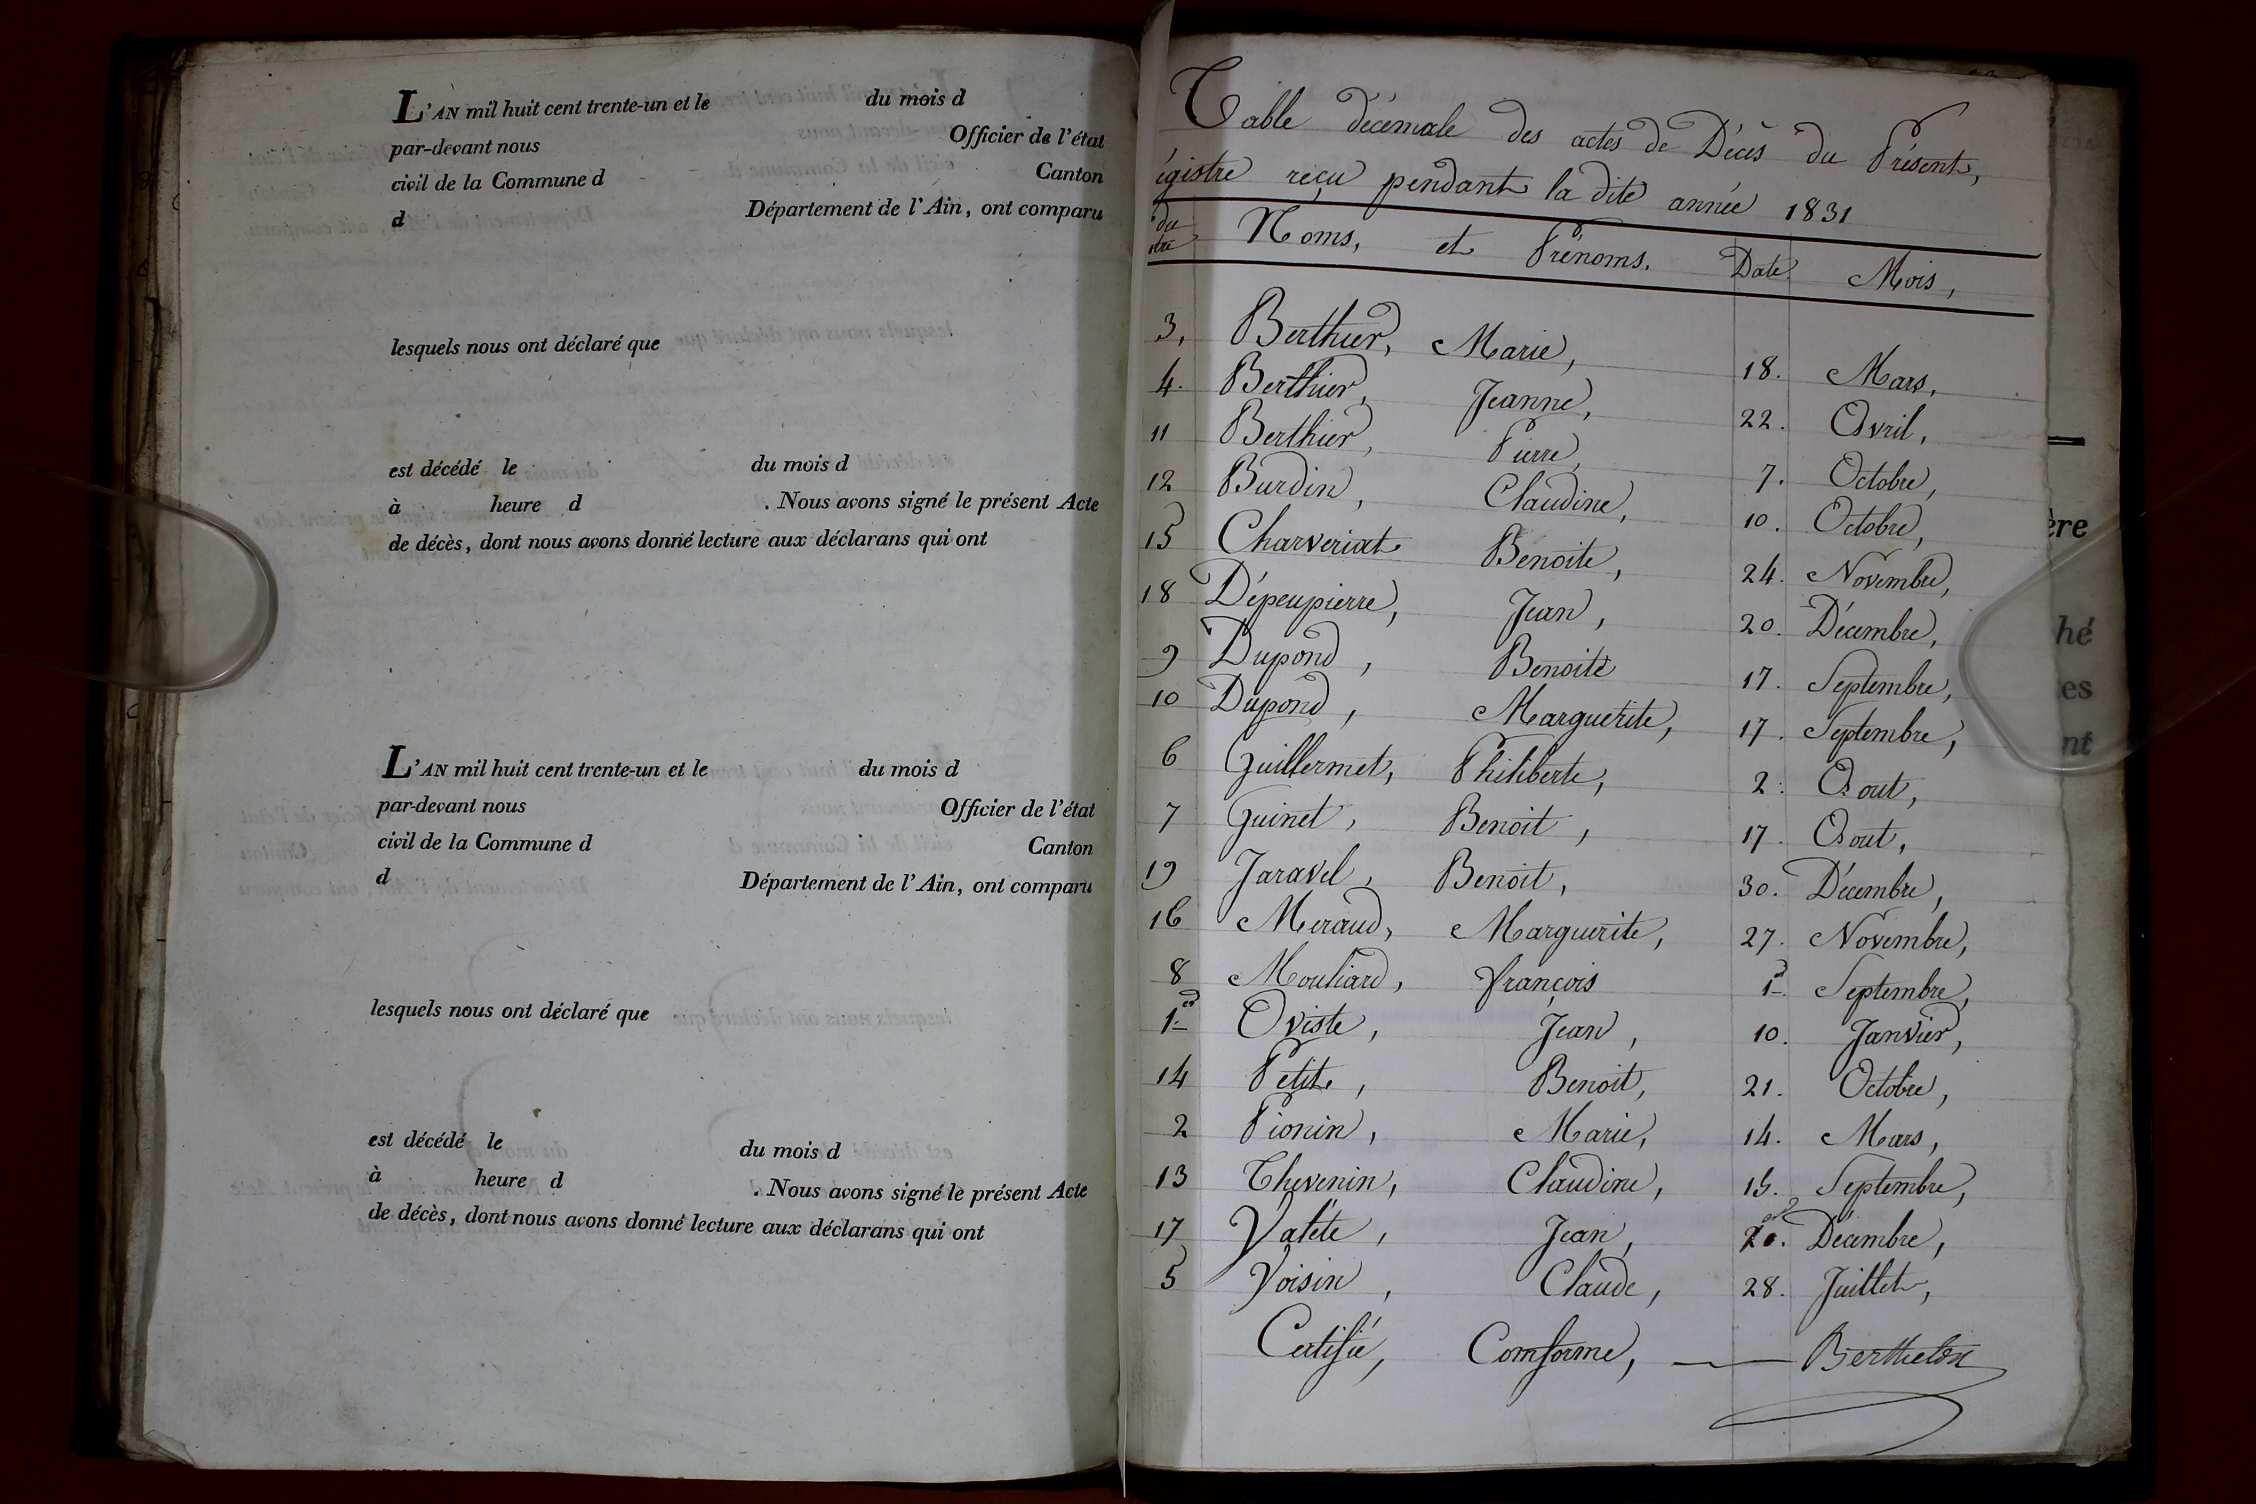 L'AN mil huit cent trente-un et le du mois d
par-devant nous Officier de l'état
civil de la Commune d Canton
d Département de l'Ain, ont comparu
lesquels nous ont déclaré que
est décédé le du mois d
à heure d . Nous avons signé le présent Acte
de décès, dont nous avons donné lecture aux déclarans qui ont
L'AN mil huit cent trente-un et le du mois d
par-devant nous Officier de l'état
civil de la Commune d Canton
d Département de l'Ain, ont comparu
lesquels nous ont déclaré que
est décédé le du mois d
à heure d . Nous avons signé le présent Acte
de décès, dont nous avons donné lecture aux déclarans qui ont
Table décémale des actes de Décès du Présent,
égistre reçu pendant la dite année 1831
du Noms, et Prénoms. Date. Mois,
3, Berthier, Marie, 18. Mars,
4. Berthier, Jeanne, 22. Avril,
11 Berthier, Pierre, 7. Octobre,
12 Burdin, Claudine, 10. Octobre,
15 Charveriat Benoite, 24. Novembre,
18 Dépeupierre, Jean, 20. Décembre,
9 Dupond, Benoite 17. Septembre,
10 Dupond, Marguerite, 17. Septembre,
6 Guillermet, Philiberte, 2. Aout,
7 Guinet, Benoit, 17. Aout,
19 Jaravel, Benoit, 30. Décembre,
16 Meraud, Marguerite, 27. Novembre,
8 Mouliard, François 1er Septembre,
1er Oviste, Jean, 10. Janvier,
14 Petit, Benoit, 21. Octobre,
2 Pionin, Marie, 14. Mars,
13 Thevenin, Claudine, 15. Septembre,
17 Valète, Jean, Décembre,
5 Voisin, Claude, 28. Juillet,
Certifié, Comforme, Berthelon
ère
hé
es
nt